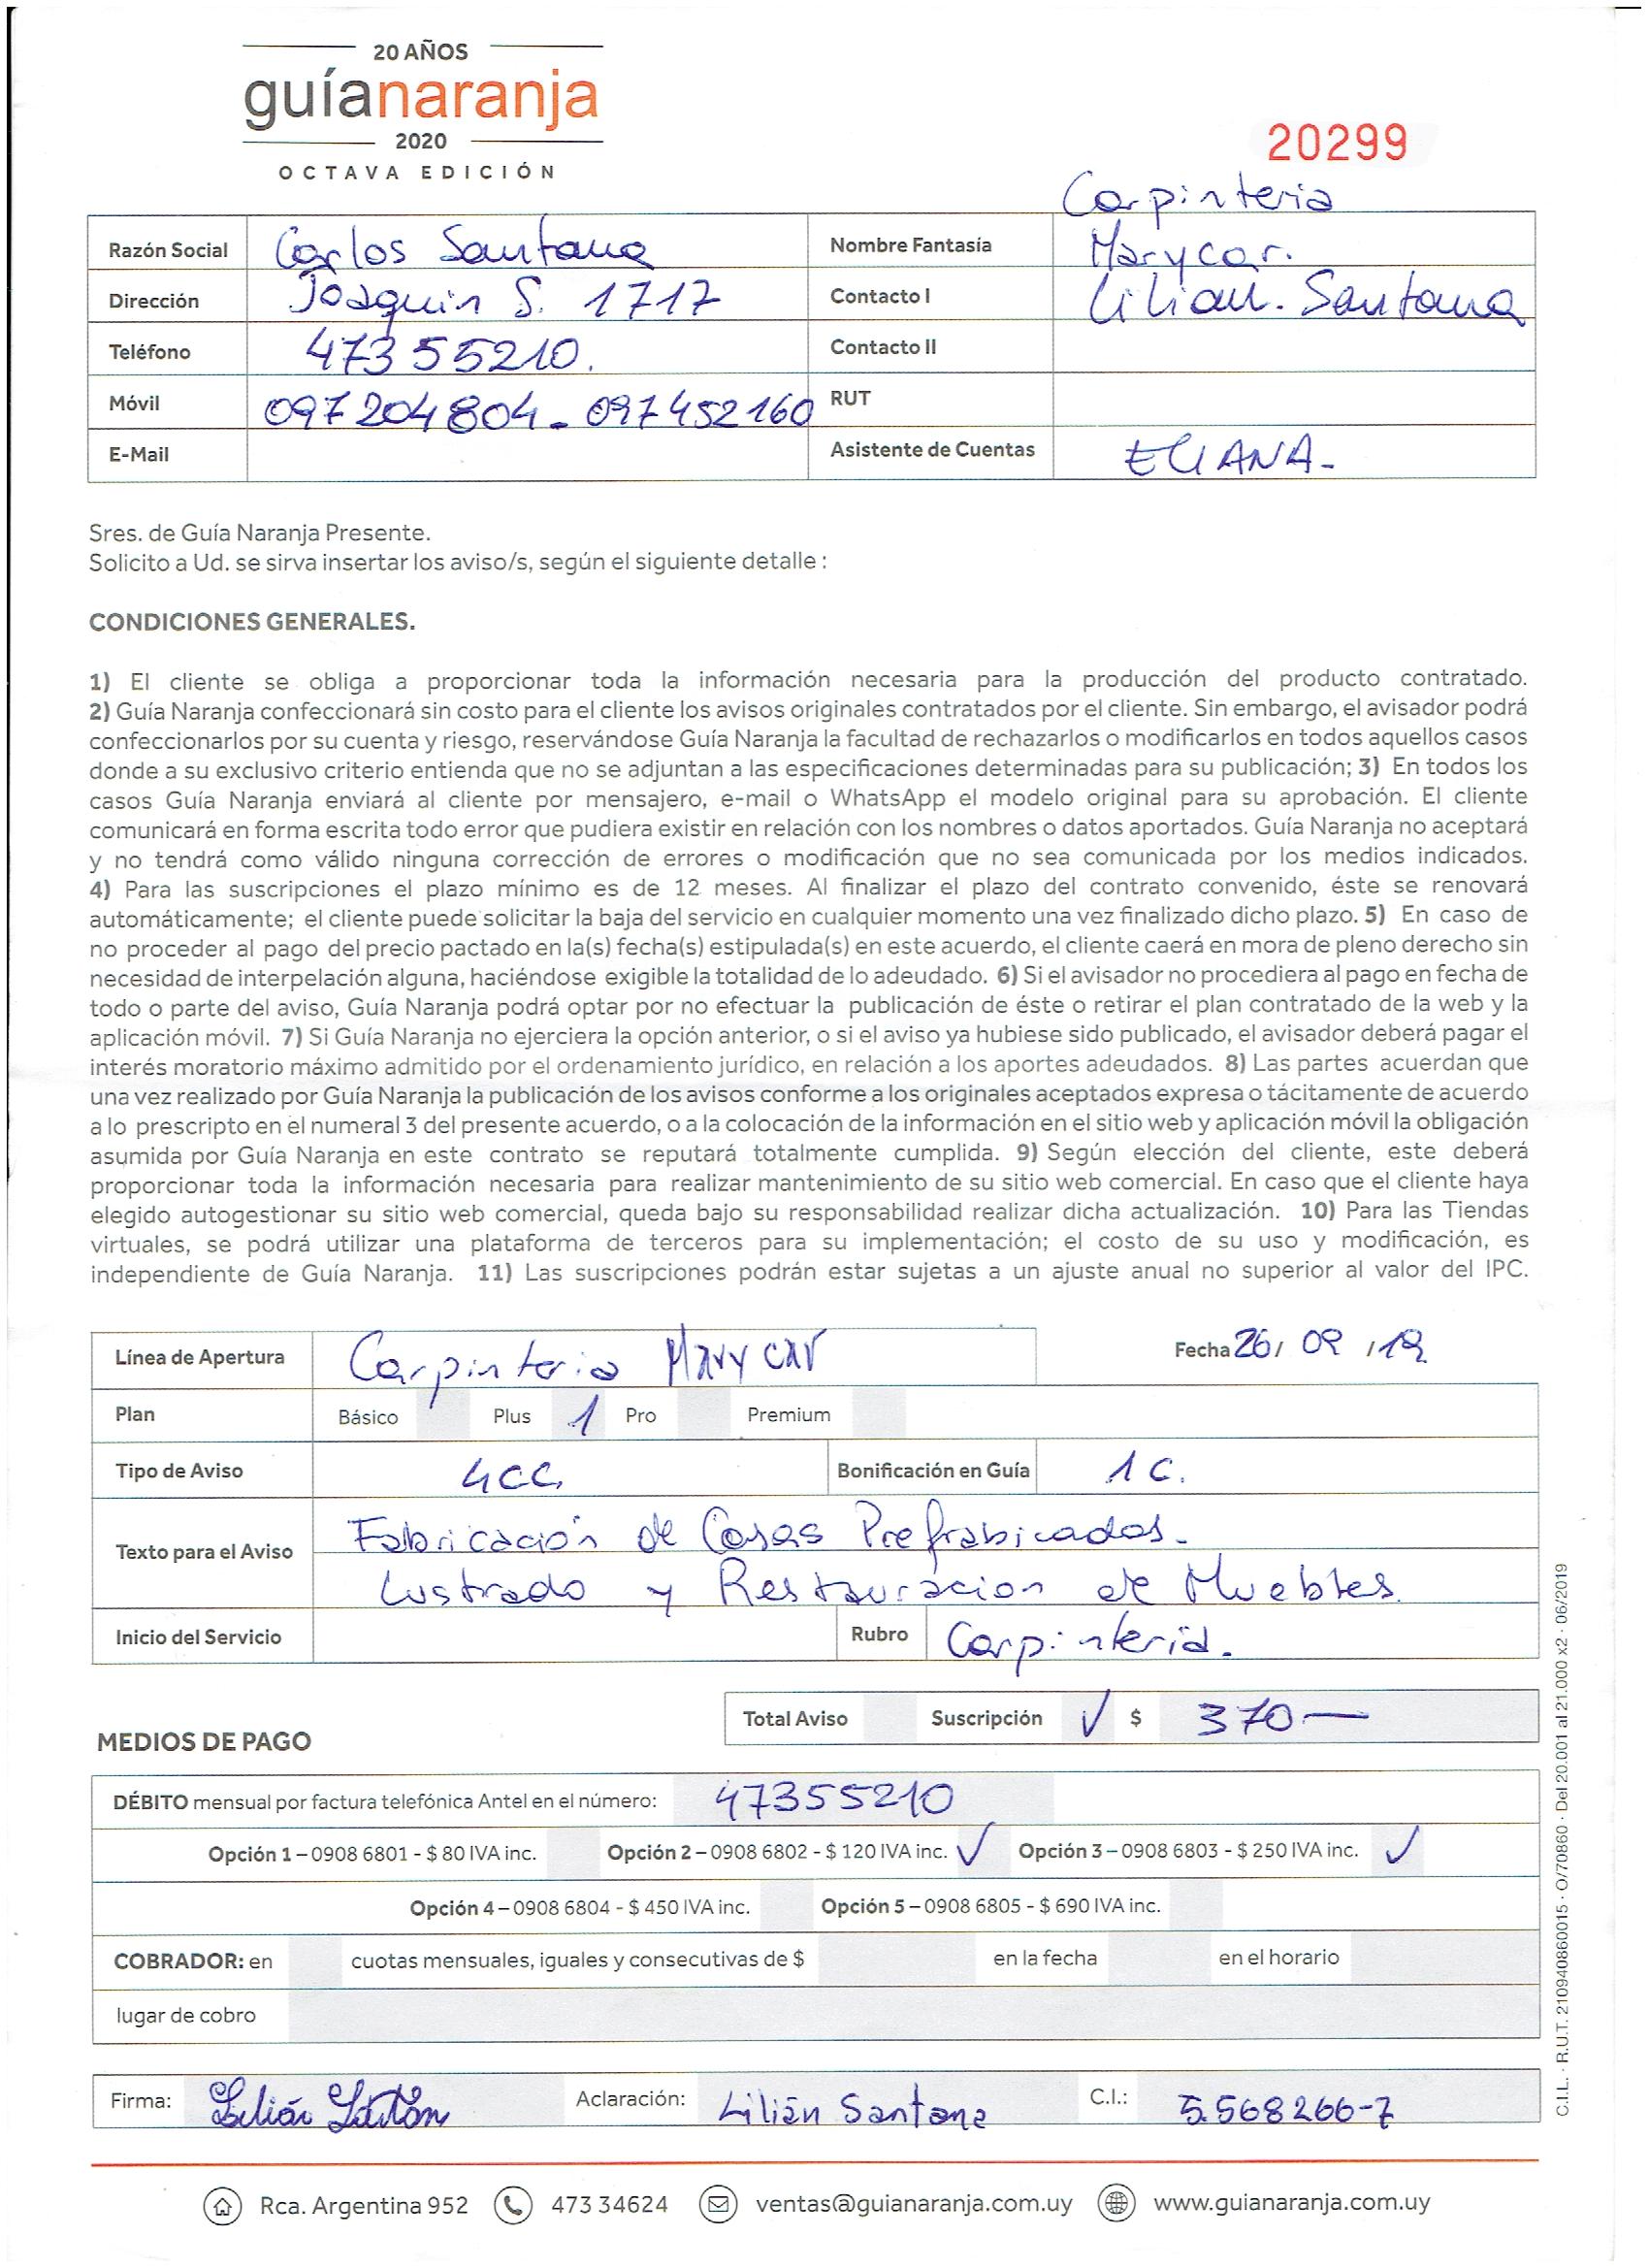 20 AÑOS
guíanaranja
2020
OCTAVA EDICIÓN
20299
Carpinteria
Razón Social Carlos Santana Nombre Fantasía Marycar.
Dirección Joaquin S. 1717 Contacto I Lilian. Santana
Teléfono 473 55210. Contacto II
Móvil 097204804 - 097452160 RUT
E-Mail Asistente de Cuentas ELIANA-
Sres. de Guía Naranja Presente.
Solicito a Ud. se sirva insertar los aviso/s, según el siguiente detalle :
CONDICIONES GENERALES.
1) El cliente se obliga a proporcionar toda la información necesaria para la producción del producto contratado.
2) Guía Naranja confeccionará sin costo para el cliente los avisos originales contratados por el cliente. Sin embargo, el avisador podrá
confeccionarlos por su cuenta y riesgo, reservándose Guía Naranja la facultad de rechazarlos o modificarlos en todos aquellos casos
donde a su exclusivo criterio entienda que no se adjuntan a las especificaciones determinadas para su publicación; 3) En todos los
casos Guía Naranja enviará al cliente por mensajero, e-mail o WhatsApp el modelo original para su aprobación. El cliente
comunicará en forma escrita todo error que pudiera existir en relación con los nombres o datos aportados. Guía Naranja no aceptará
y no tendrá como válido ninguna corrección de errores o modificación que no sea comunicada por los medios indicados.
4) Para las suscripciones el plazo mínimo es de 12 meses. Al finalizar el plazo del contrato convenido, éste se renovará
automáticamente; el cliente puede solicitar la baja del servicio en cualquier momento una vez finalizado dicho plazo. 5) En caso de
no proceder al pago del precio pactado en la(s) fecha(s) estipulada(s) en este acuerdo, el cliente caerá en mora de pleno derecho sin
necesidad de interpelación alguna, haciéndose exigible la totalidad de lo adeudado. 6) Si el avisador no procediera al pago en fecha de
todo o parte del aviso, Guía Naranja podrá optar por no efectuar la publicación de éste o retirar el plan contratado de la web y la
aplicación móvil. 7) Si Guía Naranja no ejerciera la opción anterior, o si el aviso ya hubiese sido publicado, el avisador deberá pagar el
interés moratorio máximo admitido por el ordenamiento jurídico, en relación a los aportes adeudados. 8) Las partes acuerdan que
una vez realizado por Guía Naranja la publicación de los avisos conforme a los originales aceptados expresa o tácitamente de acuerdo
a lo prescripto en el numeral 3 del presente acuerdo, o a la colocación de la información en el sitio web y aplicación móvil la obligación
asumida por Guía Naranja en este contrato se reputará totalmente cumplida. 9) Según elección del cliente, este deberá
proporcionar toda la información necesaria para realizar mantenimiento de su sitio web comercial. En caso que el cliente haya
elegido autogestionar su sitio web comercial, queda bajo su responsabilidad realizar dicha actualización. 10) Para las Tiendas
virtuales, se podrá utilizar una plataforma de terceros para su implementación; el costo de su uso y modificación, es
independiente de Guía Naranja. 11) Las suscripciones podrán estar sujetas a un ajuste anual no superior al valor del IPC.
Línea de Apertura Carpinteria Marycar Fecha 26/ 09 /19
Plan Básico Plus 1 Pro Premium
Tipo de Aviso 4CC. Bonificación en Guía 1 C.
Texto para el Aviso Fabricación de Casas Prefrabicadas.
Lustrado y Restauracion de Muebles.
Inicio del Servicio Rubro Carpinteria.
Total Aviso Suscripción ✓ $ 370—
MEDIOS DE PAGO
DÉBITO mensual por factura telefónica Antel en el número: 47355210
Opción 1 – 0908 6801 - $ 80 IVA inc. Opción 2 – 0908 6802 - $ 120 IVA inc. ✓ Opción 3 – 0908 6803 - $ 250 IVA inc. ✓
Opción 4 – 0908 6804 - $ 450 IVA inc. Opción 5 – 0908 6805 - $ 690 IVA inc.
COBRADOR: en cuotas mensuales, iguales y consecutivas de $ en la fecha en el horario
lugar de cobro
Firma: Lilián Santan Aclaración: Lilián Santana C.I.: 5.568266-7
Rca. Argentina 952 473 34624 ventas@guianaranja.com.uy www.guianaranja.com.uy
C.I.L. · R.U.T. 210940860015 · O/70860 · Del 20.001 al 21.000 x2 · 06/2019